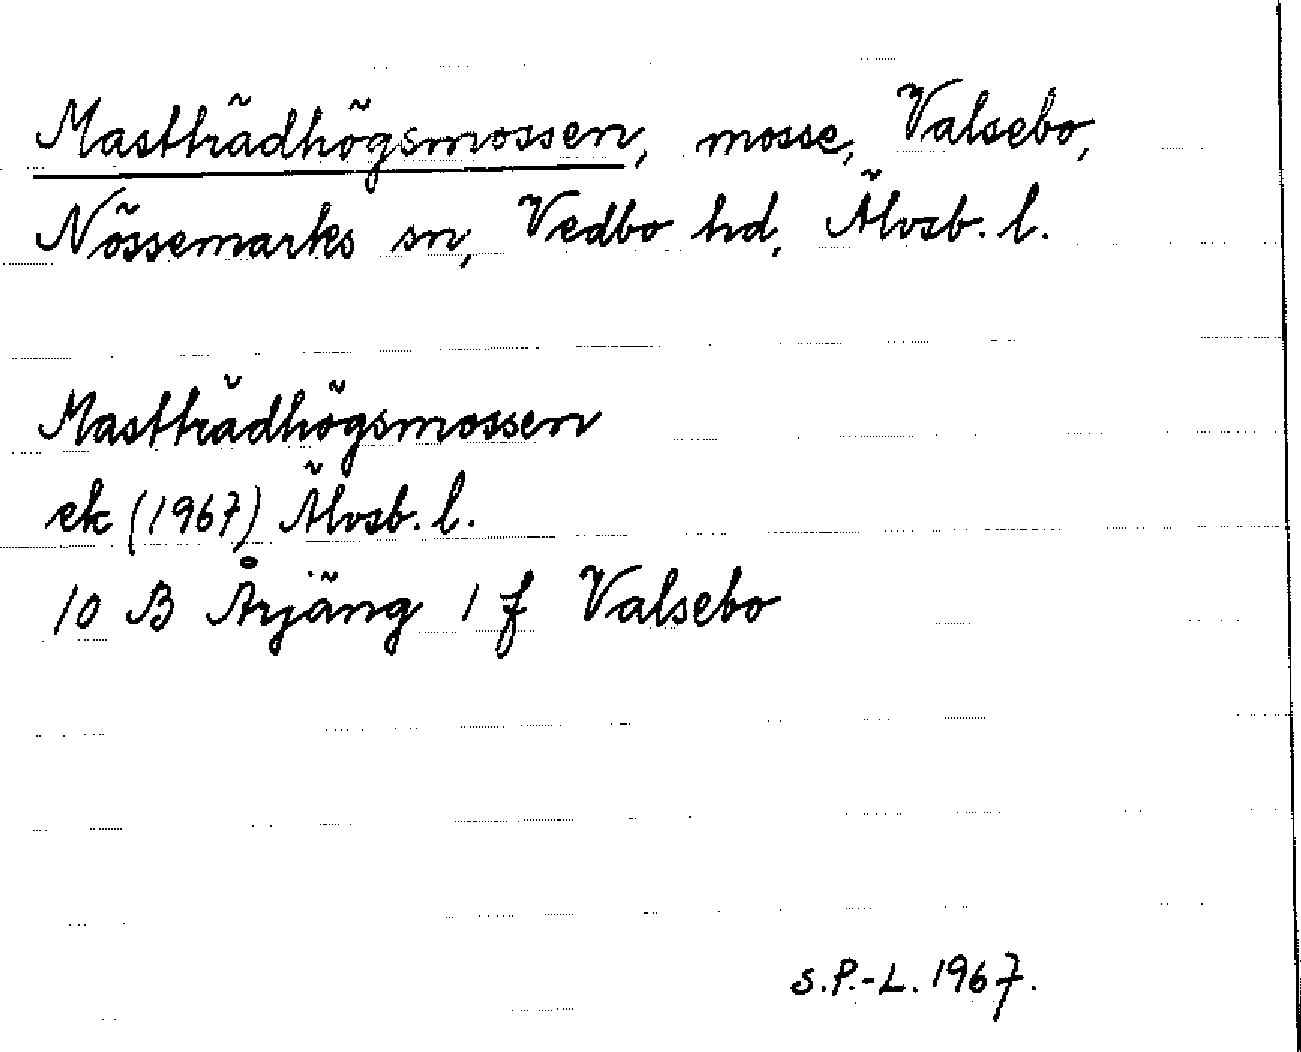 Mastträdhögsmossen, mosse, Valsebo,
Nössemarks sn, Vedbo hd, Älvsb. l.
Mastträdhögsmossen
ek (1967) Älvsb. l.
10 B Årjäng 1 f Valsebo
S.P.-L. 1967.